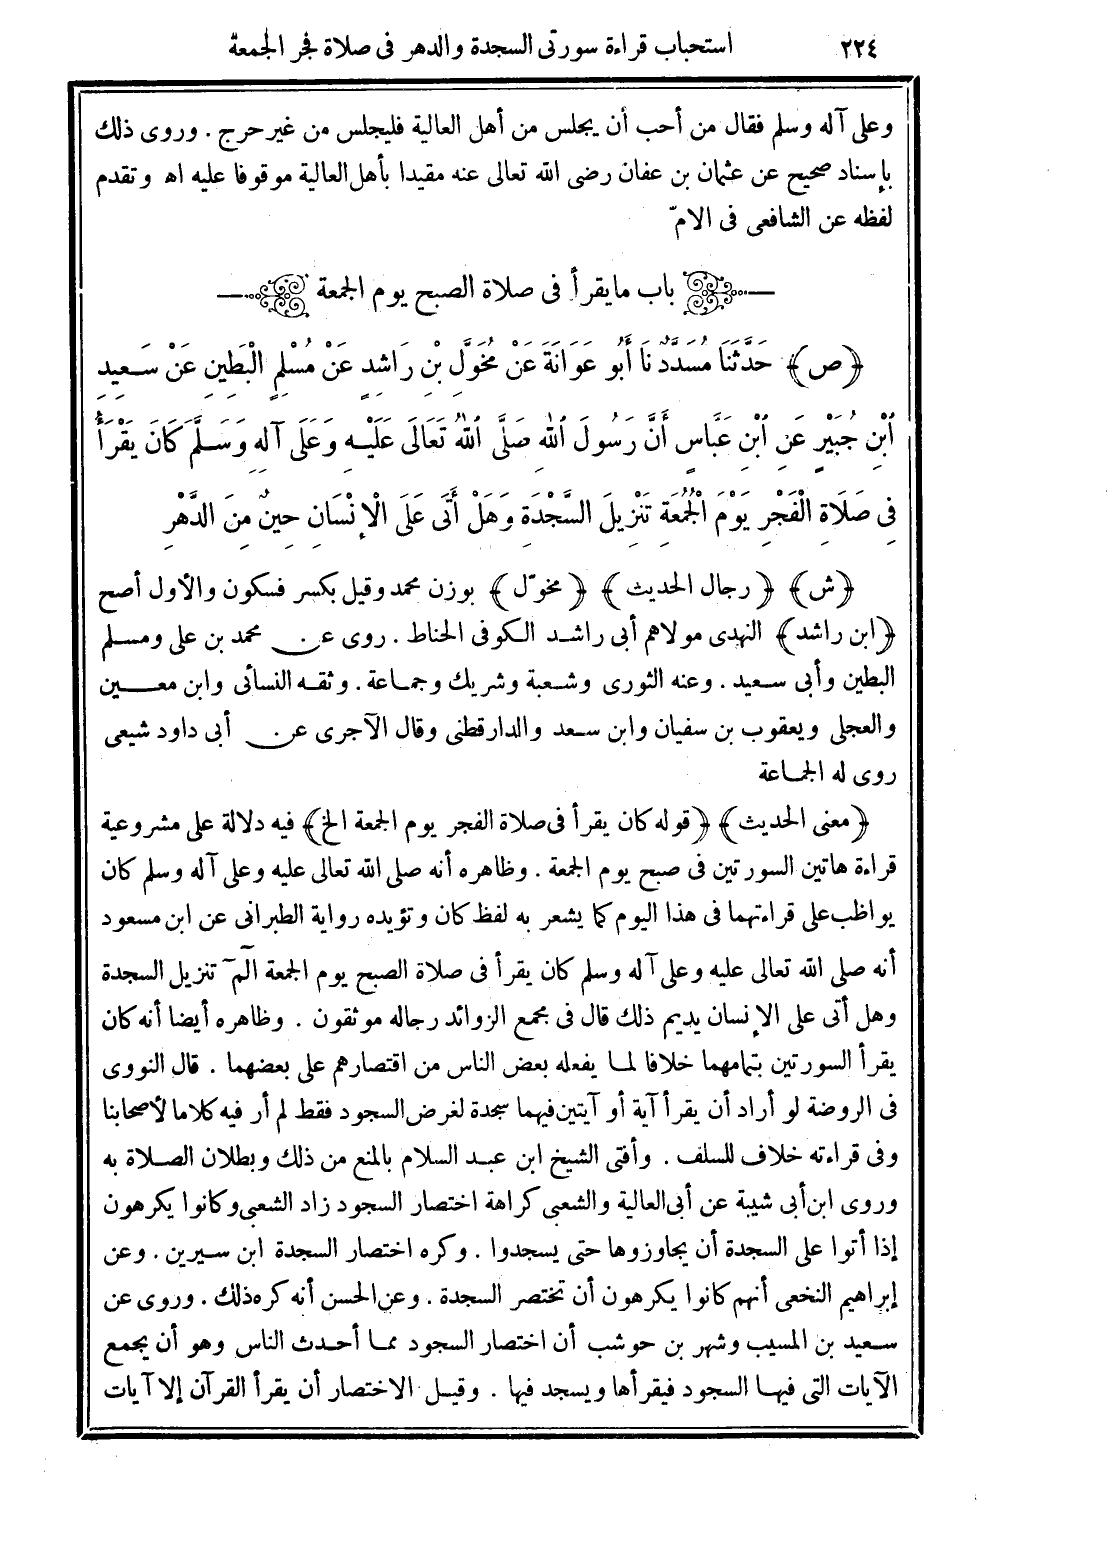 ٢٢٤ استحباب قراءة سورتى السجدة والدهر فى صلاة فجر الجمعة
وعلى آله وسلم فقال من أحب أن يجلس من أهل العالية فليجلس من غير حرج . وروى ذلك
بإسناد صحيح عن عثمان بن عفان رضى الله تعالى عنه مقيدا بأهل العالية موقوفا عليه اه وتقدم
لفظه عن الشافعى فى الامّ
باب ما يقرأ فى صلاة الصبح يوم الجمعة
﴿ص﴾ حَدَّثَنَا مُسَدَّدٌ نَا أَبُو عَوَانَةَ عَنْ مُخَوَّلِ بْنِ رَاشِدٍ عَنْ مُسْلِمٍ الْبَطِينِ عَنْ سَعِيدِ
ابْنِ جُبَيْرٍ عَنِ ابْنِ عَبَّاسٍ أَنَّ رَسُولَ اللهِ صَلَّى اللهُ تَعَالَى عَلَيْهِ وَعَلَى آلِهِ وَسَلَّمَ كَانَ يَقْرَأُ
فِى صَلَاةِ الْفَجْرِ يَوْمَ الْجُمُعَةِ تَنْزِيلَ السَّجْدَةِ وَهَلْ أَتَى عَلَى الْإِنْسَانِ حِينٌ مِنَ الدَّهْرِ
﴿ش﴾ ﴿رجال الحديث﴾ ﴿مخوّل﴾ بوزن محمد وقيل بكسر فسكون والأول أصح
﴿ابن راشد﴾ النهدى مولاهم أبى راشد الكوفى الحناط . روى عن محمد بن على ومسلم
البطين وأبى سعيد . وعنه الثورى وشعبة وشريك وجماعة . وثقه النسائى وابن معين
والعجلى ويعقوب بن سفيان وابن سعد والدارقطنى وقال الآجرى عن أبى داود شيعى
روى له الجماعة
﴿معنى الحديث﴾ ﴿قوله كان يقرأ فى صلاة الفجر يوم الجمعة الخ﴾ فيه دلالة على مشروعية
قراءة هاتين السورتين فى صبح يوم الجمعة . وظاهره أنه صلى الله تعالى عليه وعلى آله وسلم كان
يواظب على قراءتهما فى هذا اليوم كما يشعر به لفظ كان وتؤيده رواية الطبرانى عن ابن مسعود
أنه صلى الله تعالى عليه وعلى آله وسلم كان يقرأ فى صلاة الصبح يوم الجمعة الٓمٓ تنزيل السجدة
وهل أتى على الإنسان يديم ذلك قال فى مجمع الزوائد رجاله موثقون . وظاهره أيضا أنه كان
يقرأ السورتين بتمامهما خلافا لما يفعله بعض الناس من اقتصارهم على بعضهما . قال النووى
فى الروضة لو أراد أن يقرأ آية أو آيتين فيهما سجدة لغرض السجود فقط لم أر فيه كلاما لأصحابنا
وفى قراءته خلاف للسلف . وأفتى الشيخ ابن عبد السلام بالمنع من ذلك وبطلان الصلاة به
وروى ابن أبى شيبة عن أبى العالية والشعبى كراهة اختصار السجود زاد الشعبى وكانوا يكرهون
إذا أتوا على السجدة أن يجاوزوها حتى يسجدوا . وكره اختصار السجدة ابن سيرين . وعن
إبراهيم النخعى أنهم كانوا يكرهون أن تختصر السجدة . وعن الحسن أنه كره ذلك . وروى عن
سعيد بن المسيب وشهر بن حوشب أن اختصار السجود مما أحدث الناس وهو أن يجمع
الآيات التى فيها السجود فيقرأها ويسجد فيها . وقيل الاختصار أن يقرأ القرآن إلا آيات